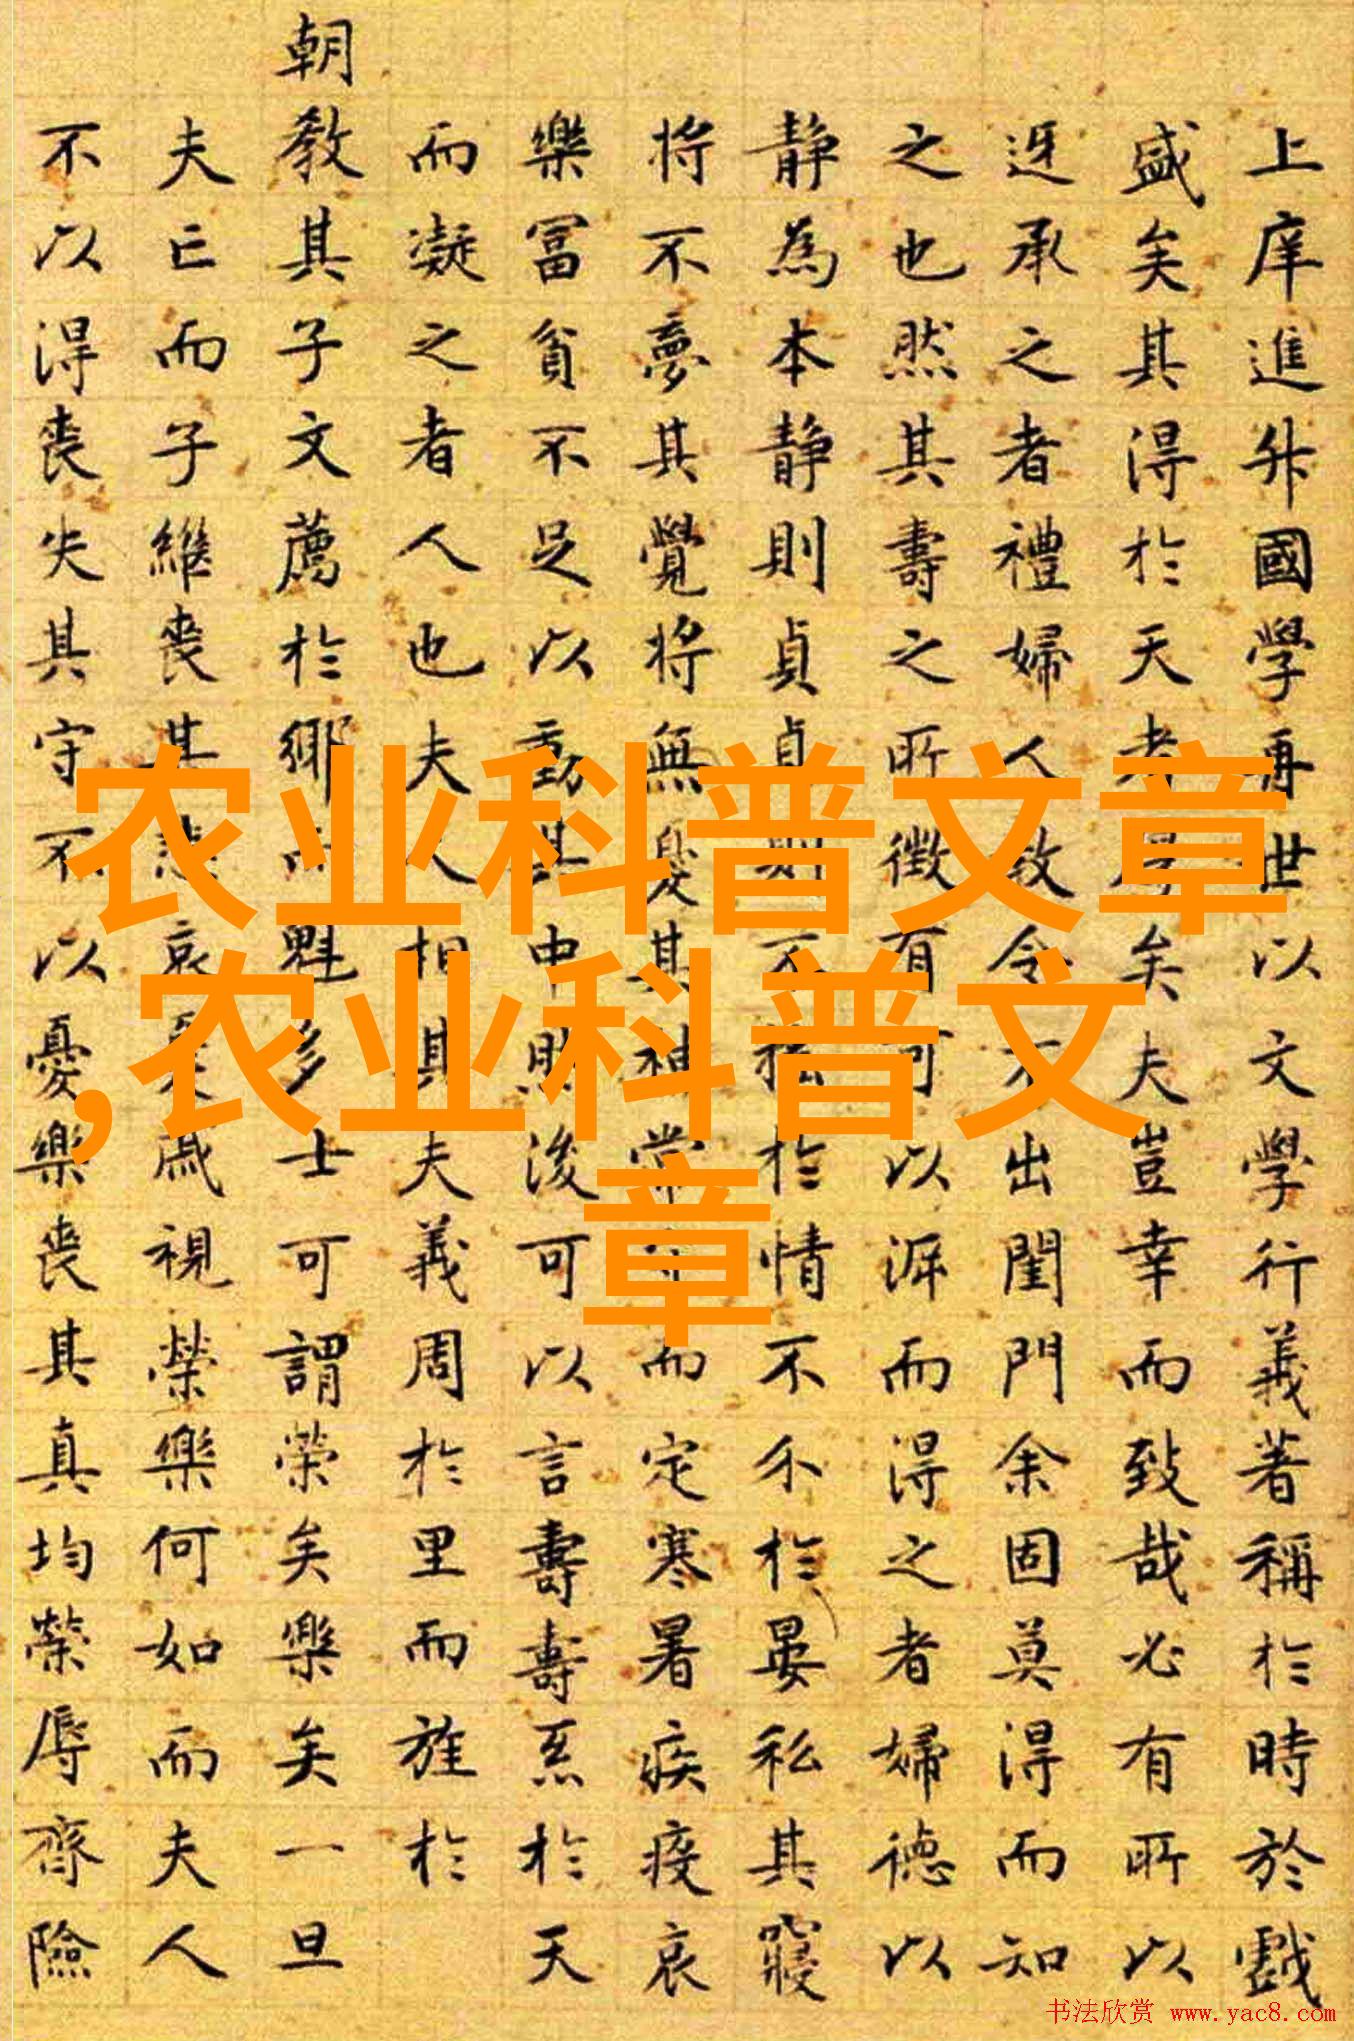 上庠進升國學再世以文學行義著稱於時於戲
盛矣其得於天者厚矣夫豈幸而致哉必有所以
迓承之者禮婦人教令不出閨門余固莫得而知
之也然其壽之所徵有可以涯而得之者婦德以
静為本静則貞貞則不擾於情不介於晏私其寢
將不夢其覺將無憂其神常而定寒暑疾疫哀
樂冨貧不足以動其中然後可以言壽壽烝於天
而凝之者人也夫夫人相其夫義周於里而旌於
朝教其子文薦於鄉而魁多士可謂榮矣樂矣一旦
夫亡而子繼喪其悲哀憂戚視榮樂何如而夫人
不以得喪失其守不以憂樂喪其真均榮辱齊險
农业科普文章
,农业科普文
章
书法欣赏 www.yac8.com